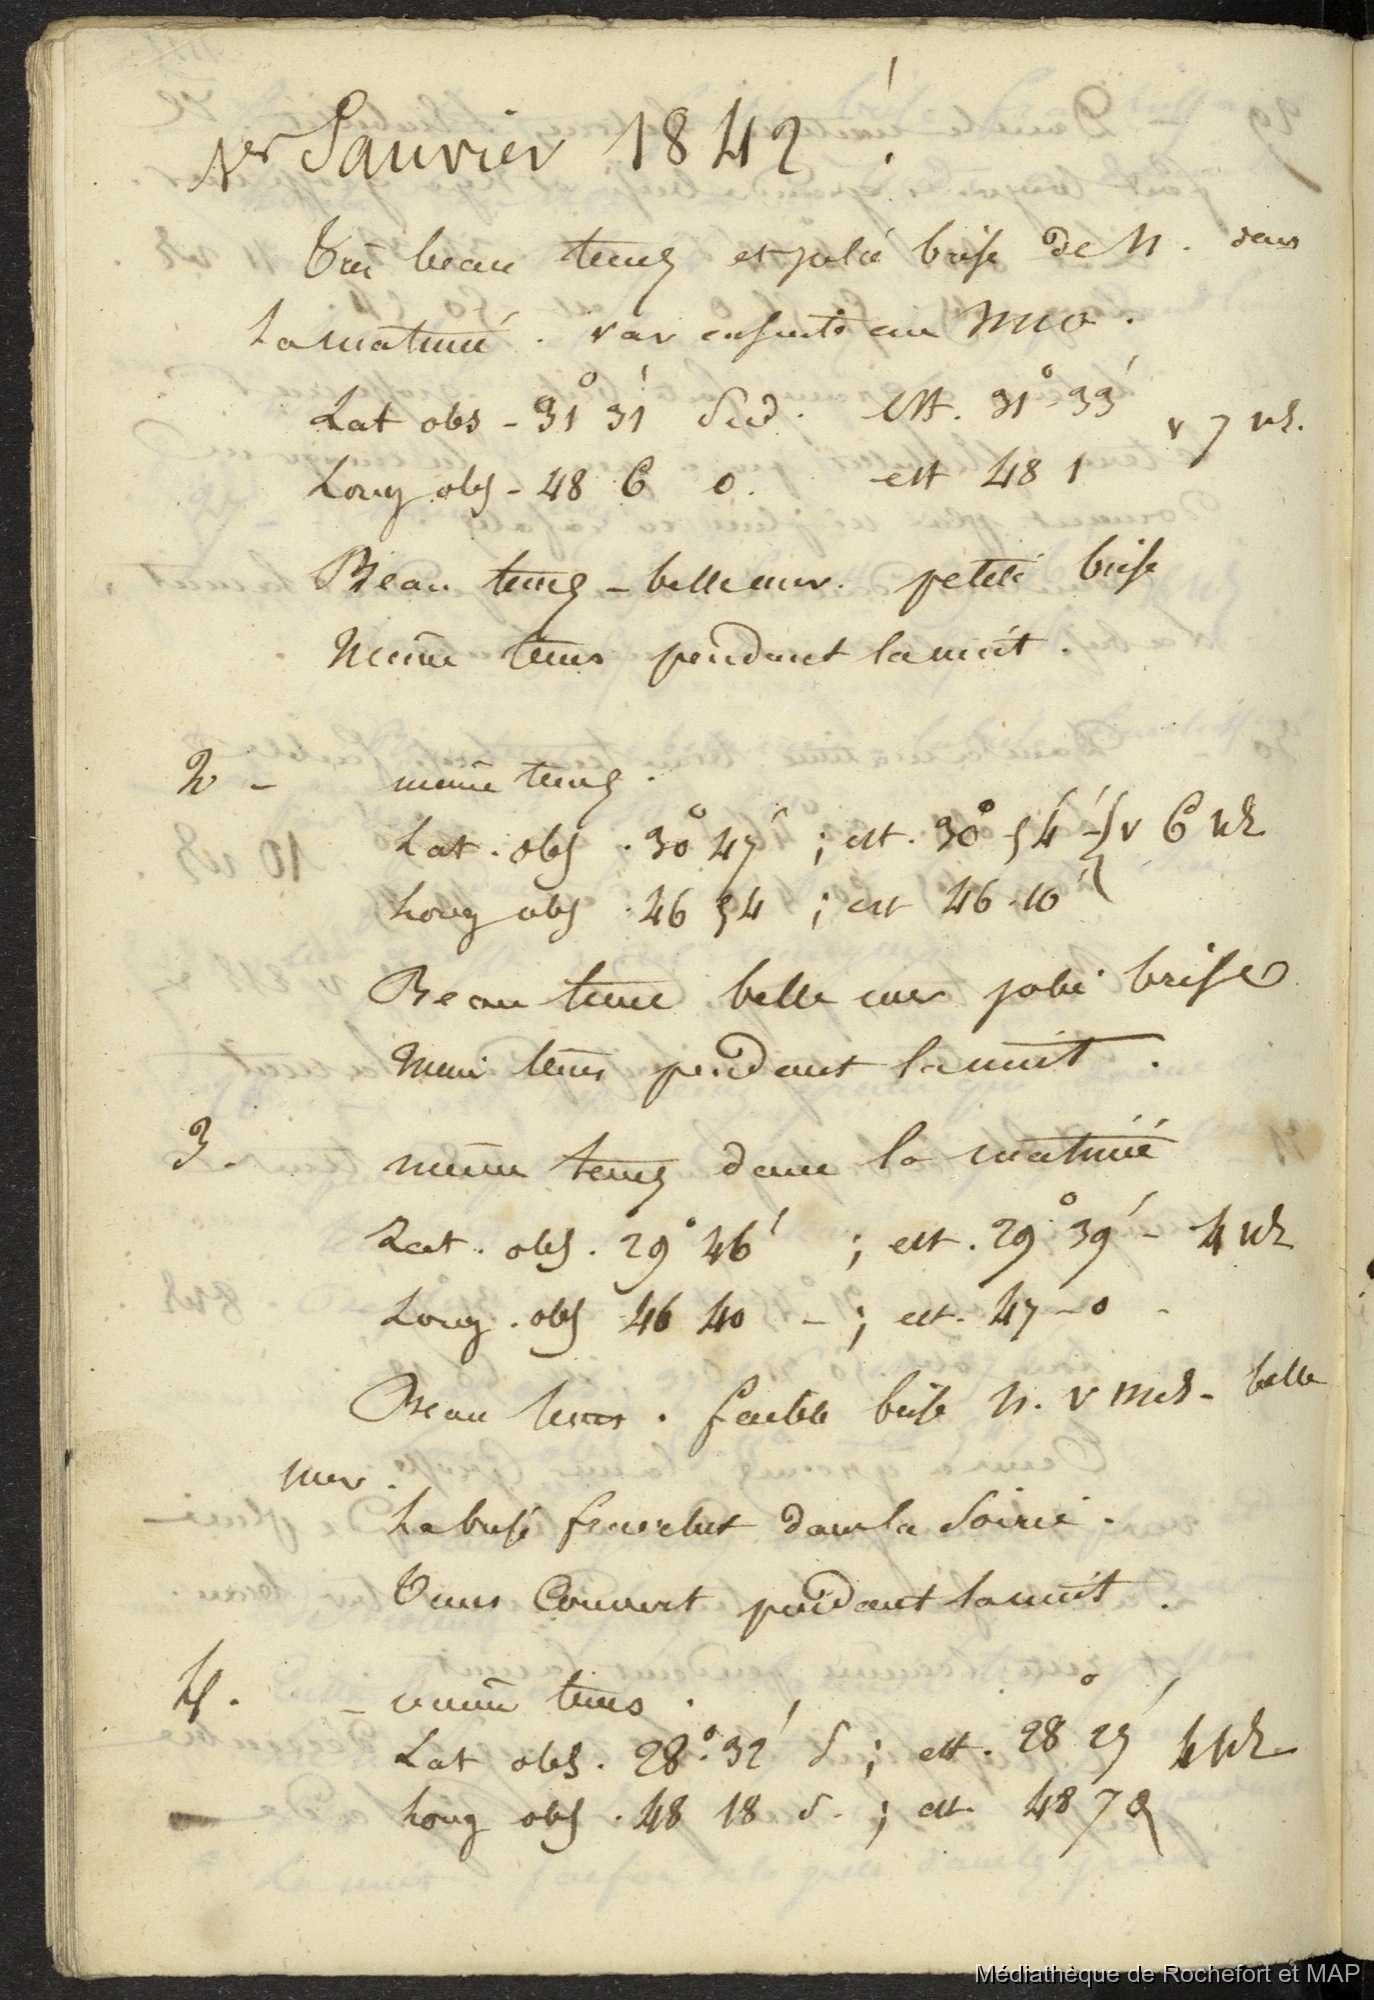 1er Janvier 1842
Très beau temps et jolie brise de N. dans
La matinée. var ensuite au NNO.
Lat obs - 31° 31' Sud. est. 31° 33'
v 7 nds.
Long obs - 48 6 o. est 48 1
Beau temps - belle mer. petite brise
Même tems pendant la nuit.
2 - même temps.
Lat. obs. 30° 47' ; est. 30° 54' v 6 nds
Long obs. 46 54 ; est 46.10'
Beau tems belle mer jolie brise
Même tems pendant la nuit.
3. même temps dans la matinée
Lat. obs. 29° 46' ; est. 29° 39' - 4 nds
Long. obs 46 40 - ; est. 47 - 0 -
Beau tems. faible brise N. v - belle
mer.
La brise fraichit dans la Soirée.
Tems Couvert pendant la nuit.
4. - même tems.
Lat obs. 28° 32' S ; est. 28° 25' 4 nds
Long obs. 48 18 S. ; est. 48 7
Médiathèque de Rochefort et MAP